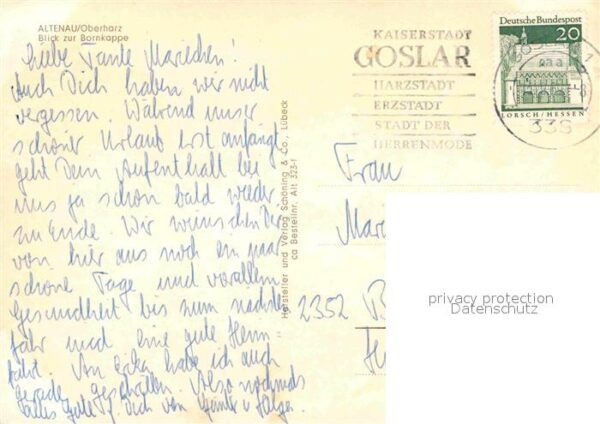 ALTENAU/Oberharz
Blick zur Bornkappe
Liebe Tante Mariechen!
Auch Dich haben wir nicht
vergessen. Während unser
schöner Urlaub erst anfängt
geht Dein Aufenthalt bei
uns ja schon bald wieder
zu Ende. Wir wünschen Dir
von hier aus noch ein paar
schöne Tage und vor allem
Gesundheit bis zum nächsten
Jahr und eine gute Heim
fahrt. Von habe ich auch
gerade geschrieben. Also nochmals
alles Gute Dich von Günter u. Helga.
Hersteller und Verlag Schöning & Co., Lübeck
ca Bestellnr. Alt 323-f
KAISERSTADT
GOSLAR
HARZSTADT
ERZSTADT
STADT DER
HERRENMODE
Deutsche Bundespost
20
LORSCH/HESSEN
338
Frau
Mari
2352 B
privacy protection
Datenschutz